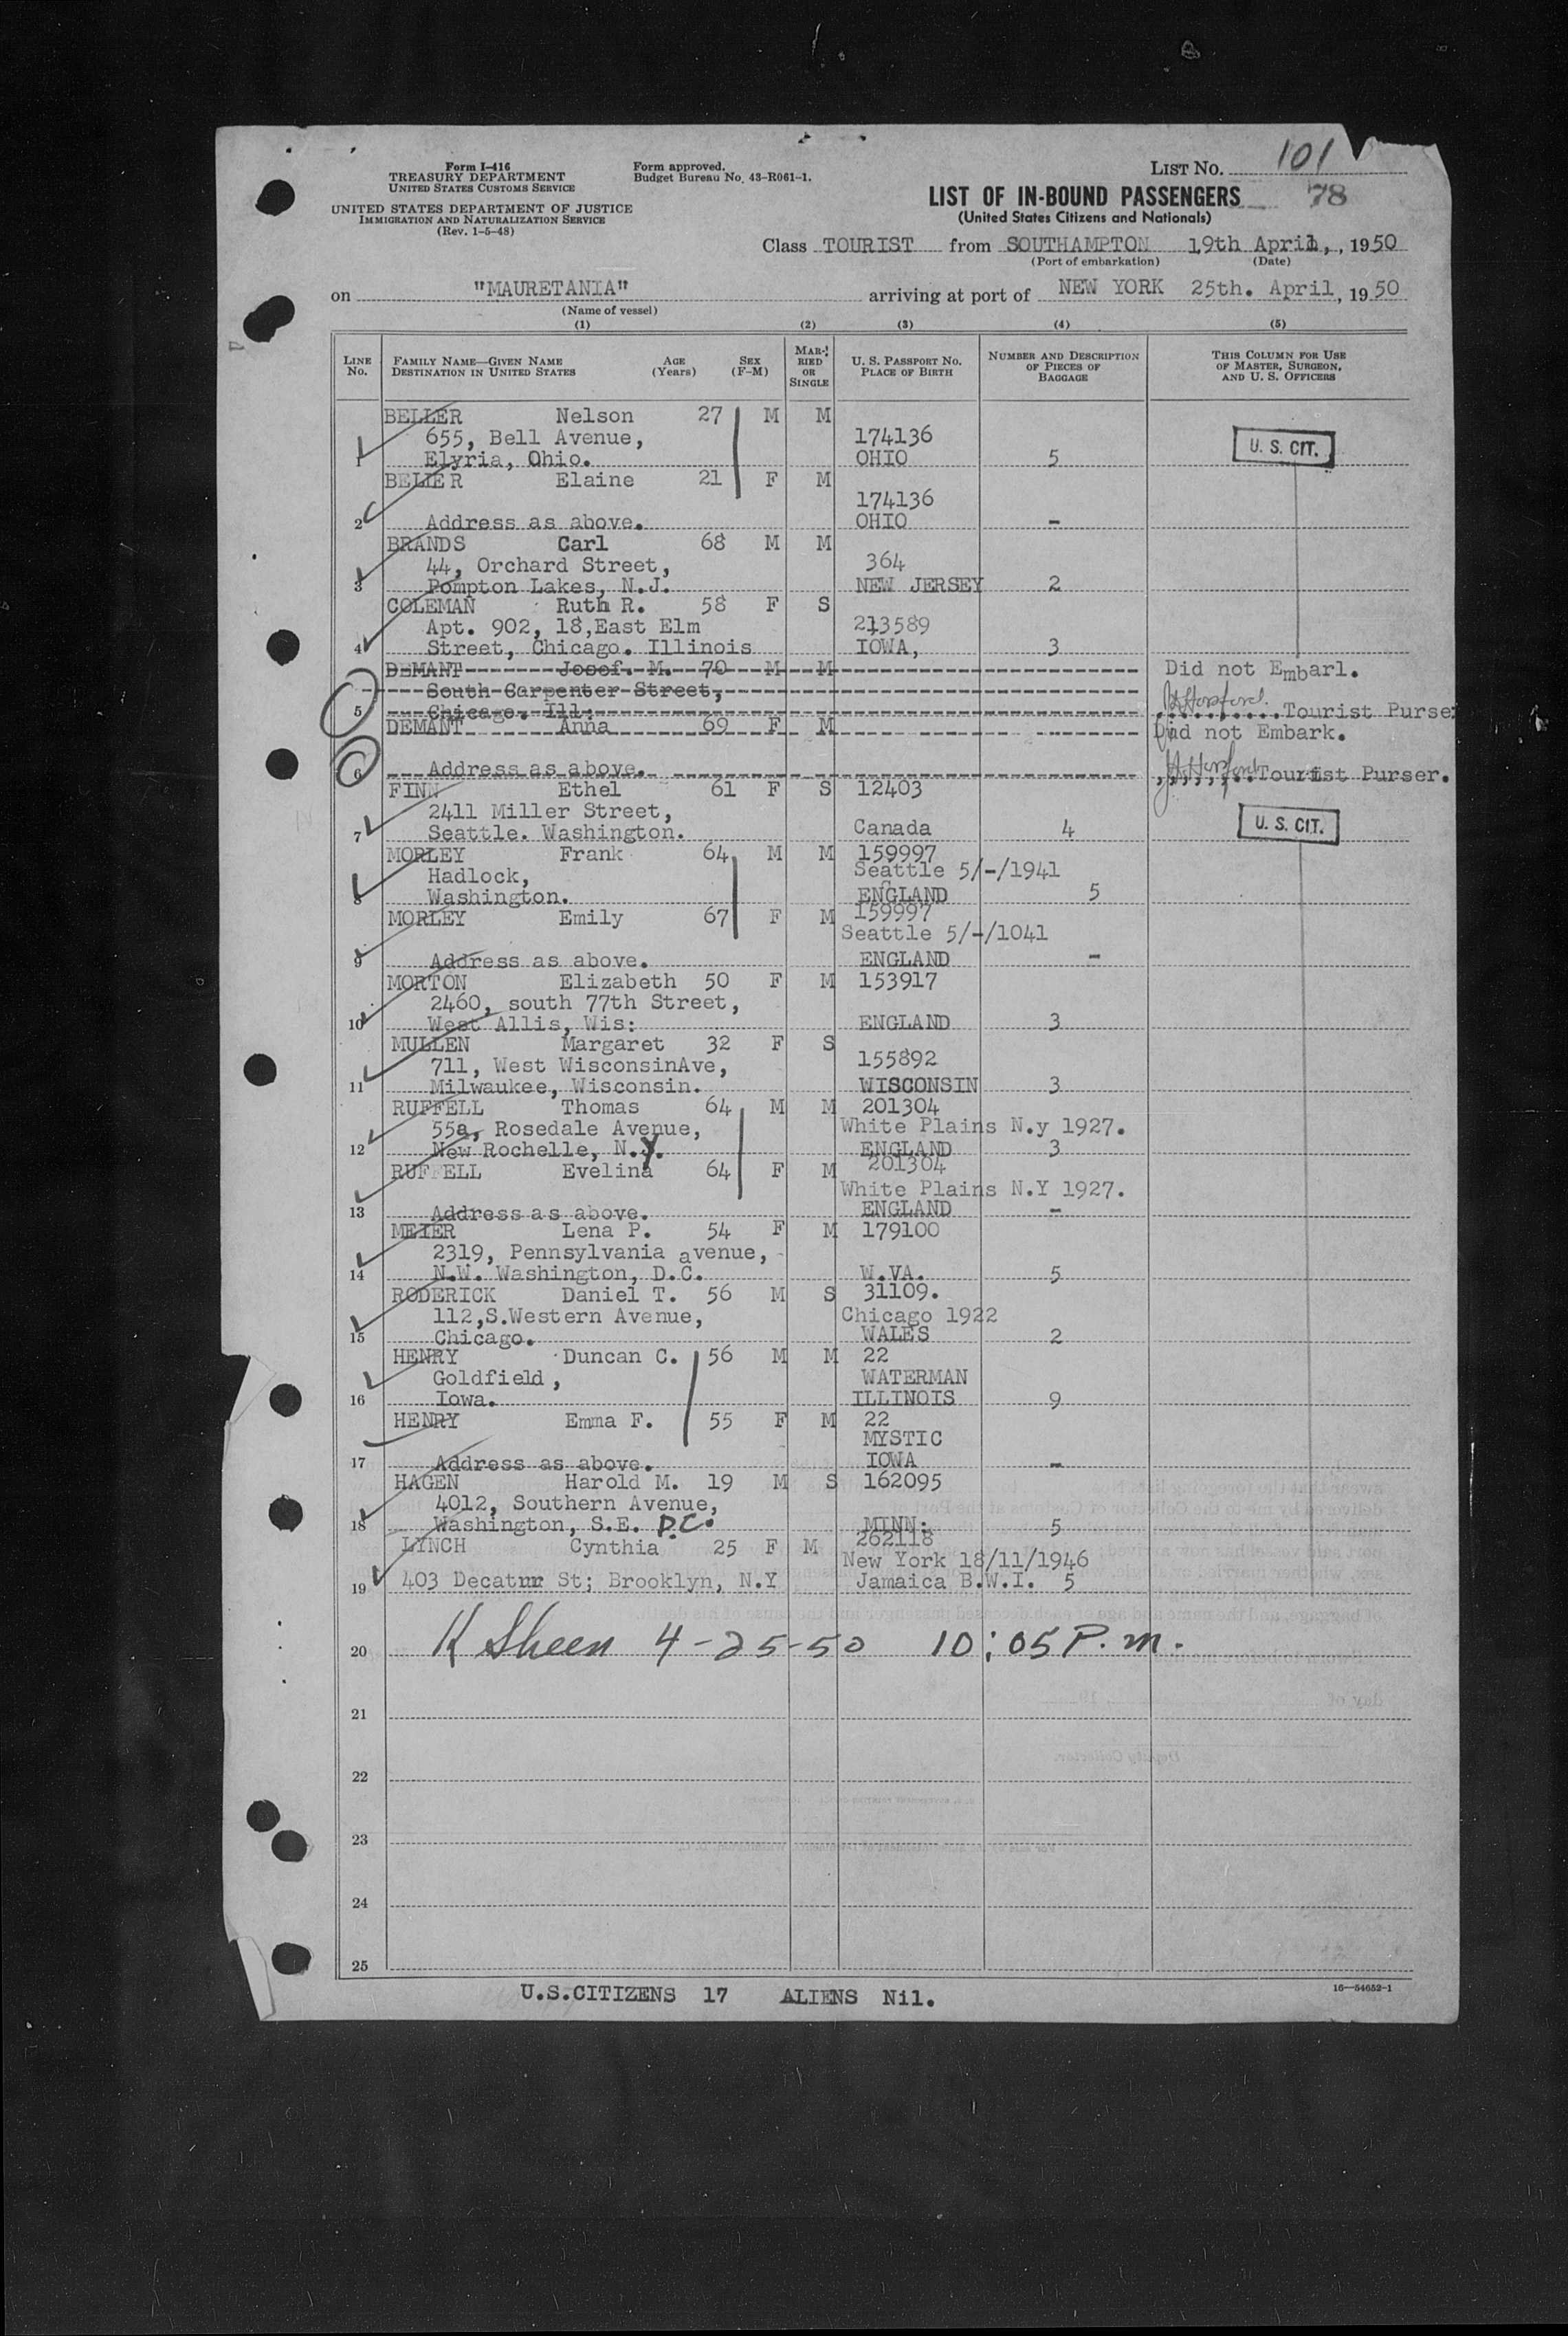 Form I-416
TREASURY DEPARTMENT
UNITED STATES CUSTOMS SERVICE
UNITED STATES DEPARTMENT OF JUSTICE
IMMIGRATION AND NATURALIZATION SERVICE
(Rev. 1-5-48)
Form approved.
Budget Bureau No. 43-R061-1.
LIST No. 101
78
LIST OF IN-BOUND PASSENGERS
(United States Citizens and Nationals)
Class TOURIST from SOUTHAMPTON 19th April, , 1950
(Port of embarkation) (Date)
on "MAURETANIA" arriving at port of NEW YORK 25th. April, 1950
(Name of vessel)
(1) (2) (3) (4) (5)
LINE No. FAMILY NAME—GIVEN NAME DESTINATION IN UNITED STATES AGE (Years) SEX (F-M) MARRIED OR SINGLE U. S. PASSPORT NO. PLACE OF BIRTH NUMBER AND DESCRIPTION OF PIECES OF BAGGAGE THIS COLUMN FOR USE OF MASTER, SURGEON, AND U. S. OFFICERS
BELLER Nelson 27 M M
655, Bell Avenue, 174136
1 Elyria, Ohio. OHIO 5 U. S. CIT.
BELLER Elaine 21 F M
174136
2 Address as above. OHIO -
BRANDS Carl 68 M M
44, Orchard Street, 364
3 Pompton Lakes, N.J. NEW JERSEY 2
COLEMAN Ruth R. 58 F S
Apt. 902, 18,East Elm 213589
4 Street, Chicago. Illinois IOWA, 3
DEMANT Josef. M. 70 M M Did not Embarl.
South Carpenter Street,
5 Chicago. Ill: Tourist Purser
DEMANT Anna 69 F M Did not Embark.
6 Address as above. Tourist Purser.
FINN Ethel 61 F S 12403
2411 Miller Street,
7 Seattle. Washington. Canada 4 U. S. CIT.
MORLEY Frank 64 M M 159997
Hadlock, Seattle 5/-/1941
8 Washington. ENGLAND 5
MORLEY Emily 67 F M 159997
Seattle 5/-/1041
9 Address as above. ENGLAND -
MORTON Elizabeth 50 F M 153917
2460, south 77th Street,
10 West Allis, Wis: ENGLAND 3
MULLEN Margaret 32 F S
711, West WisconsinAve, 155892
11 Milwaukee, Wisconsin. WISCONSIN 3
RUFFELL Thomas 64 M M 201304
55a, Rosedale Avenue, White Plains N.y 1927.
12 New Rochelle, N.Y. ENGLAND 3
RUFFELL Evelina 64 F M 201304
White Plains N.Y 1927.
13 Address as above. ENGLAND -
MEIER Lena P. 54 F M 179100
2319, Pennsylvania avenue,
14 N.W. Washington, D.C. W.VA. 5
RODERICK Daniel T. 56 M S 31109.
112,S.Western Avenue, Chicago 1922
15 Chicago. WALES 2
HENRY Duncan C. 56 M M 22
Goldfield, WATERMAN
16 Iowa. ILLINOIS 9
HENRY Emma F. 55 F M 22
MYSTIC
17 Address as above. IOWA -
HAGEN Harold M. 19 M S 162095
4012, Southern Avenue,
18 Washington, S.E. D.C. MINN: 5
LYNCH Cynthia 25 F M 262118
New York 18/11/1946
19 403 Decatur St; Brooklyn, N.Y Jamaica B.W.I. 5
20 K Sheen 4-25-50 10:05 P.m.
21
22
23
24
25
U.S.CITIZENS 17 ALIENS Nil.
16—54652-1